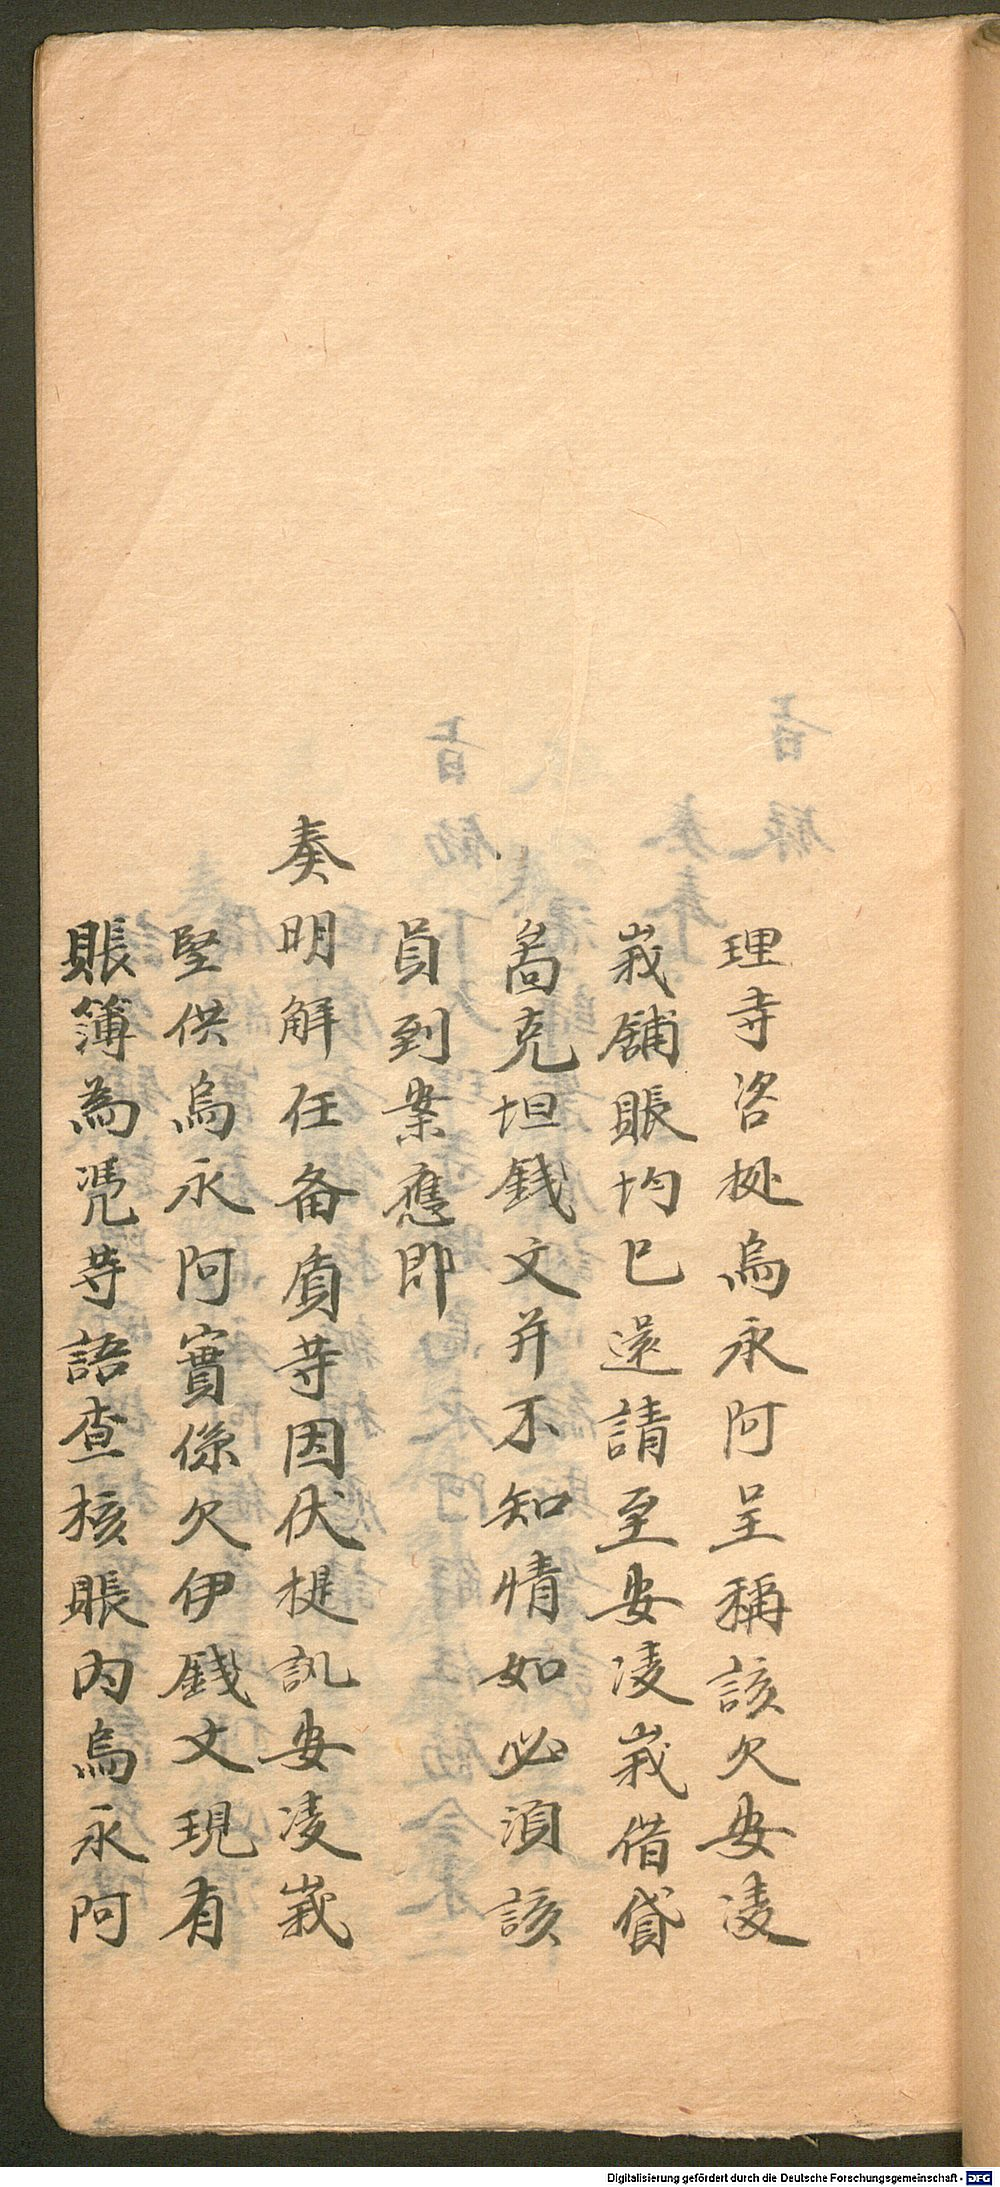 理寺咨授烏永阿呈稱該欠安凌
峩舖賬均已還請至安凌峩借貸
啇克坦錢文并不知情如必湏該
員到案應即
奏明解任备質䓁因伏提訊安凌峩
堅供烏永阿實係欠伊錢文現有
賬簿為凴䓁語查核賬內烏永阿
Digitalisierung gefördert durch die Deutsche Forschungsgemeinschaft - DFG